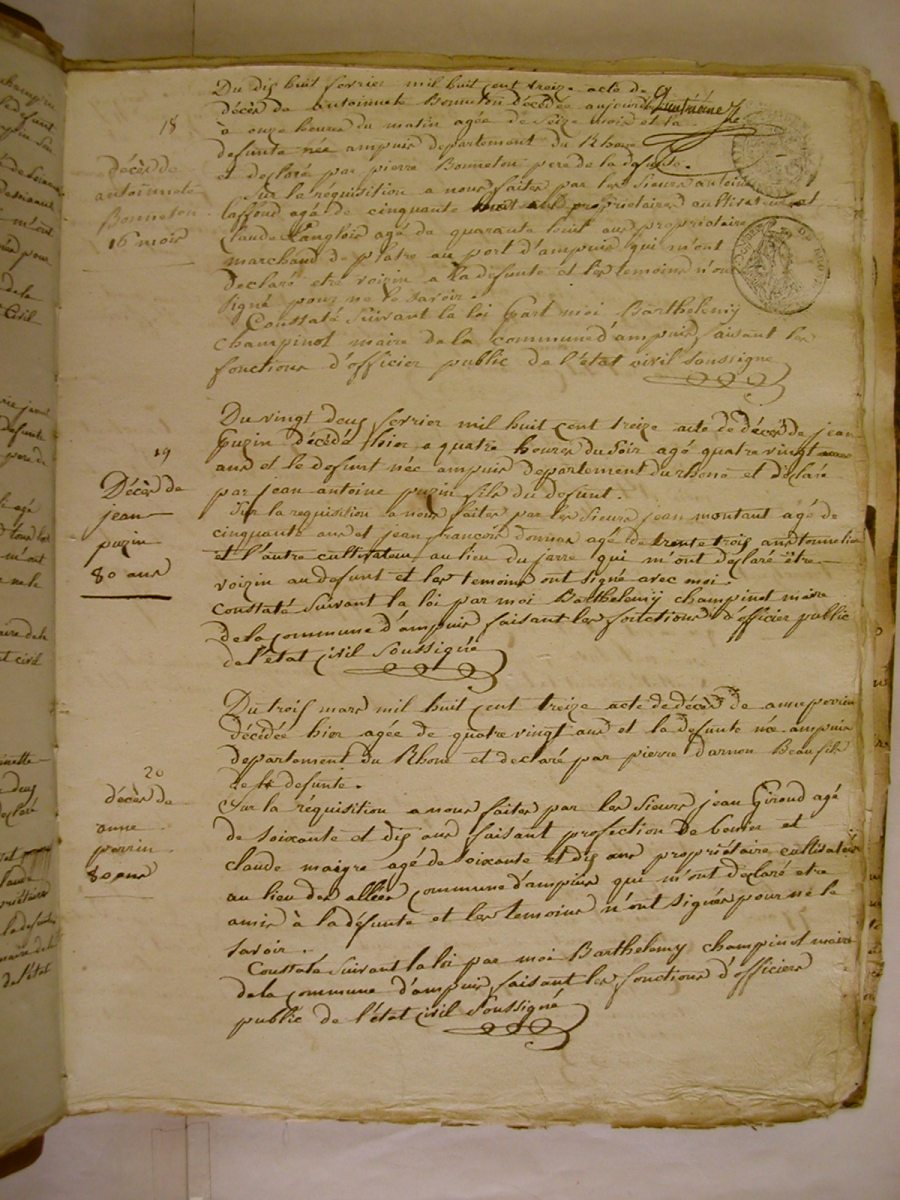 Du dix huit fevrier mil huit cent treize acte de
décès de antoinnete Bonneton décédée aujourd'hui
à onze heures du matin agée de seize mois et la
defunte née ampuis departement du Rhone
et declaré par pierre Bonneton pere de la defunte.
Sur la réquisition a nous faites par les sieurs antoine
laffond agé de cinquante propriétaire cultivateur et
claude Langlois agé de quarante huit ans propriétaire
marchand de platre au port d'ampuis qui m'ont
declaré etre voizin a la defunte et les temoins n'ont
signé pour ne le savoir.
Constaté suivant la loi part moi Barthelemij
champinot maire de la commune d'ampuis faisant les
fonctions d'officier public de l'état civil soussigné
18
décès de
antoinnete
Bonneton
16 mois
Du vingt deux fevrier mil huit cent treize acte de décès de jean
puzin décédé hier a quatre heures du soir agé quatre vingt
ans et le defunt née ampuis departement du rhone et déclaré
par jean antoine puzin fils du defunt.
Sur la requisition a nous faites par les sieurs jean montant agé de
cinquante ans et jean francois donna agé de trente trois ans tonnelier
et l'autre cultivateur au lieu du jarre qui m'ont declaré être
voizin au defunt et les temoins ont signé avec moi.
Constaté suivant la loi par moi Barthelemij champinot maire
de la commune d'ampuis faisant les fonctions d'officier public
de l'état civil soussigné
19
Décès de
jean
puzin
80 ans
Du trois mars mil huit cent treize acte de décès de anne perrin
décédée hier agée de quatre vingt ans et la defunte née ampuis
departement du Rhone et declaré par pierre darnon Beau fils
de la defunte.
Sur la réquisition a nous faites par les sieurs jean Giroud agé
de soixante et dix ans faisant profection de
claude maigre agé de soixante et dix ans propriétaire cultivateur
au lieu des allées commune d'ampuis qui m'ont declaré etre
amis à la défunte et les temoins n'ont signés pour ne le
savoir.
Constaté suivant la loi par moi Barthelemy champinot maire
de la commune d'ampuis faisant les fonctions d'officiers
public de l'état civil soussigné
20
décès de
anne
perrin
80 ans